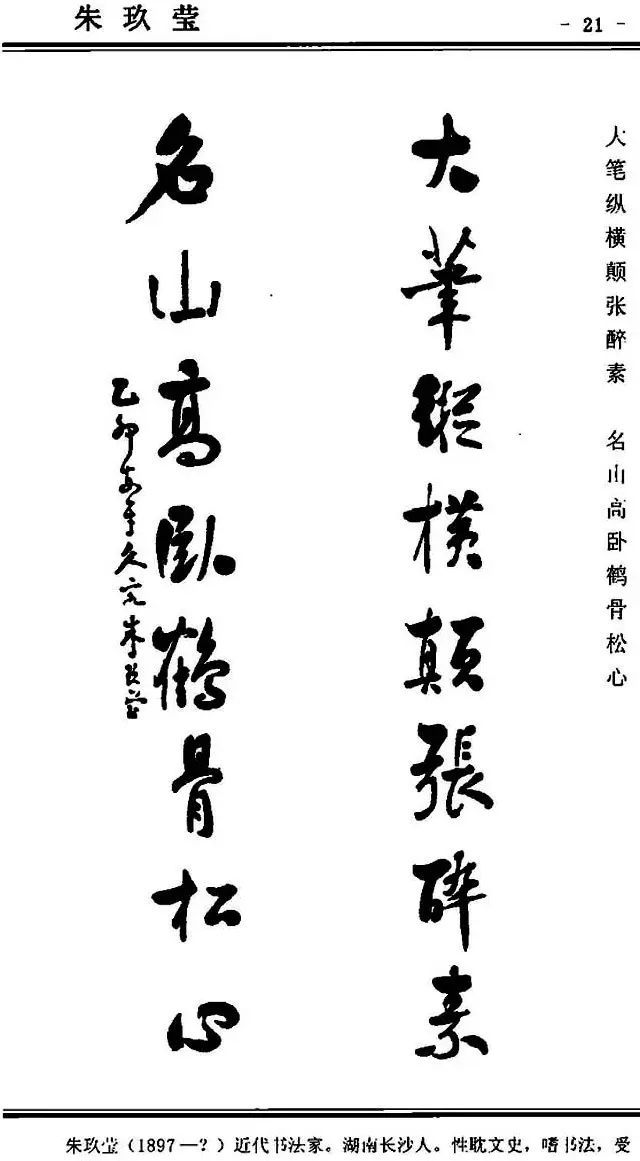 朱玖莹
- 21 -
大笔纵横颠张醉素 名山高卧鹤骨松心
大筆縱橫顛張醉素
名山高臥鶴骨松心
乙卯
朱玖莹
朱玖莹(1897—?)近代书法家。湖南长沙人。性耽文史，嗜书法，受